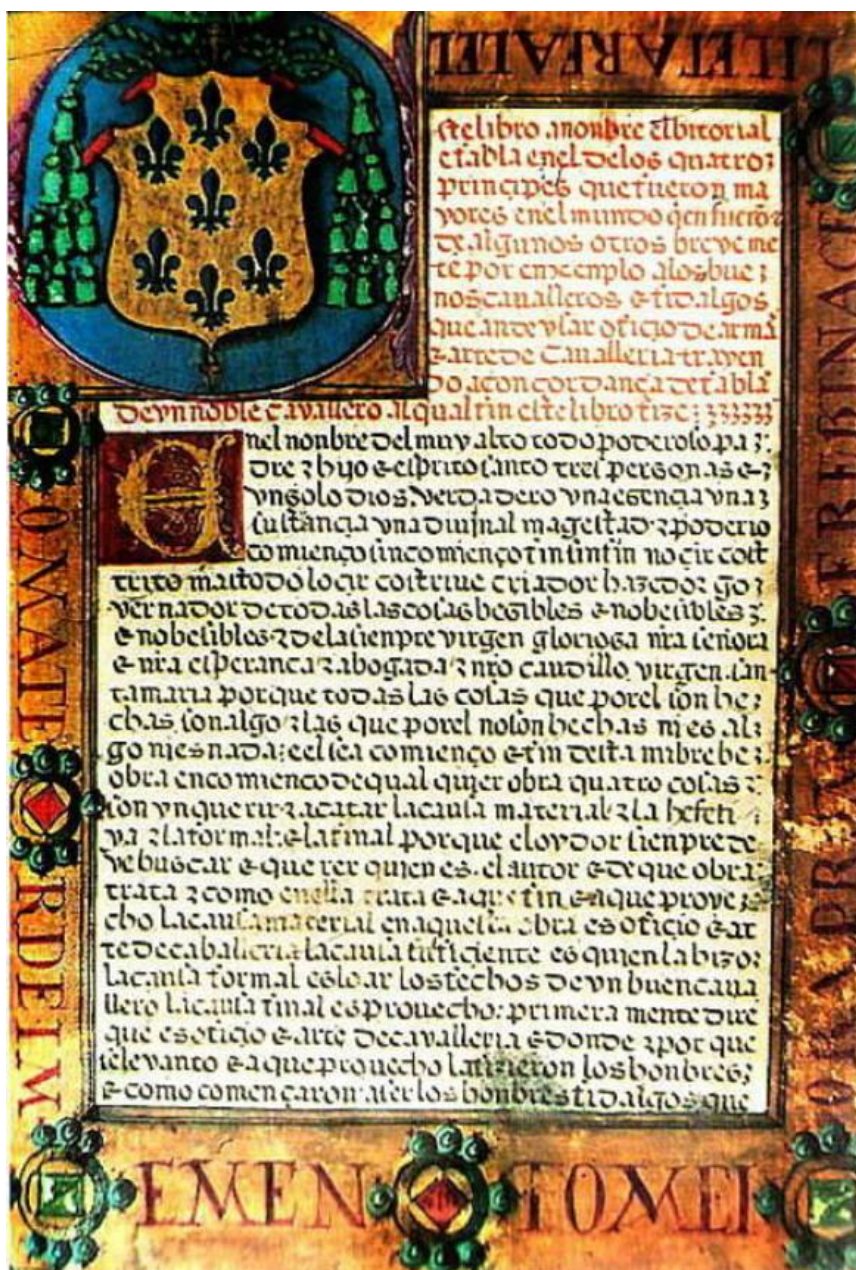 ste libro a nonbre el bitorial
e fabla en el de los quatro
principes que fueron ma
yores en el mundo
de algunos otros breve me
te por enxenplo a los bue
nos cavalleros e fidalgos
que an de usar oficio de arma
e arte de Cavalleria trayen
do a concordança de fabla
de un noble cavallero al qual fin este libro fize
En el nonbre del muy alto todo poderoso pa
dre e hijo e esprito santo tres personas e
un solo dios verdadero una esençia una
sustançia una divinal magestad e poderio
comienço sin comienço fin sin fin no çir cost
trito mas todo lo çir costrive criador hazedor go
vernador de todas las cosas besibles e nobesibles
e nobesibles e de la sienpre virgen gloriosa nra señora
e nra esperança e abogada e nro caudillo virgen san
ta maria porque todas las cosas que por el son he
chas son algo e las que por el no son hechas ni es al
go ni es nada el sea comienço e fin desta mi brebe
obra en comienco de qual quier obra quatro cosas
son ynquerir e acatar la causa material e la hefeti
va e la formal e la final porque el oydor sienpre de
ve buscar e querer quien es el autor e de que obra
trata e como en ella trata e a que fin e a que prove
cho la causa material en aquella obra es oficio e ar
te de caballeria la causa efiçiente es quien la hizo
la causa formal es loar los fechos de un buen cava
llero la causa final es provecho primera mente dire
que es oficio e arte de cavalleria e donde e por que
se levanto e a que provecho la fizieron los honbres
e como començaron a ser los honbres fidalgos que
O MATE
R DEI M
EMEN
TO MEI